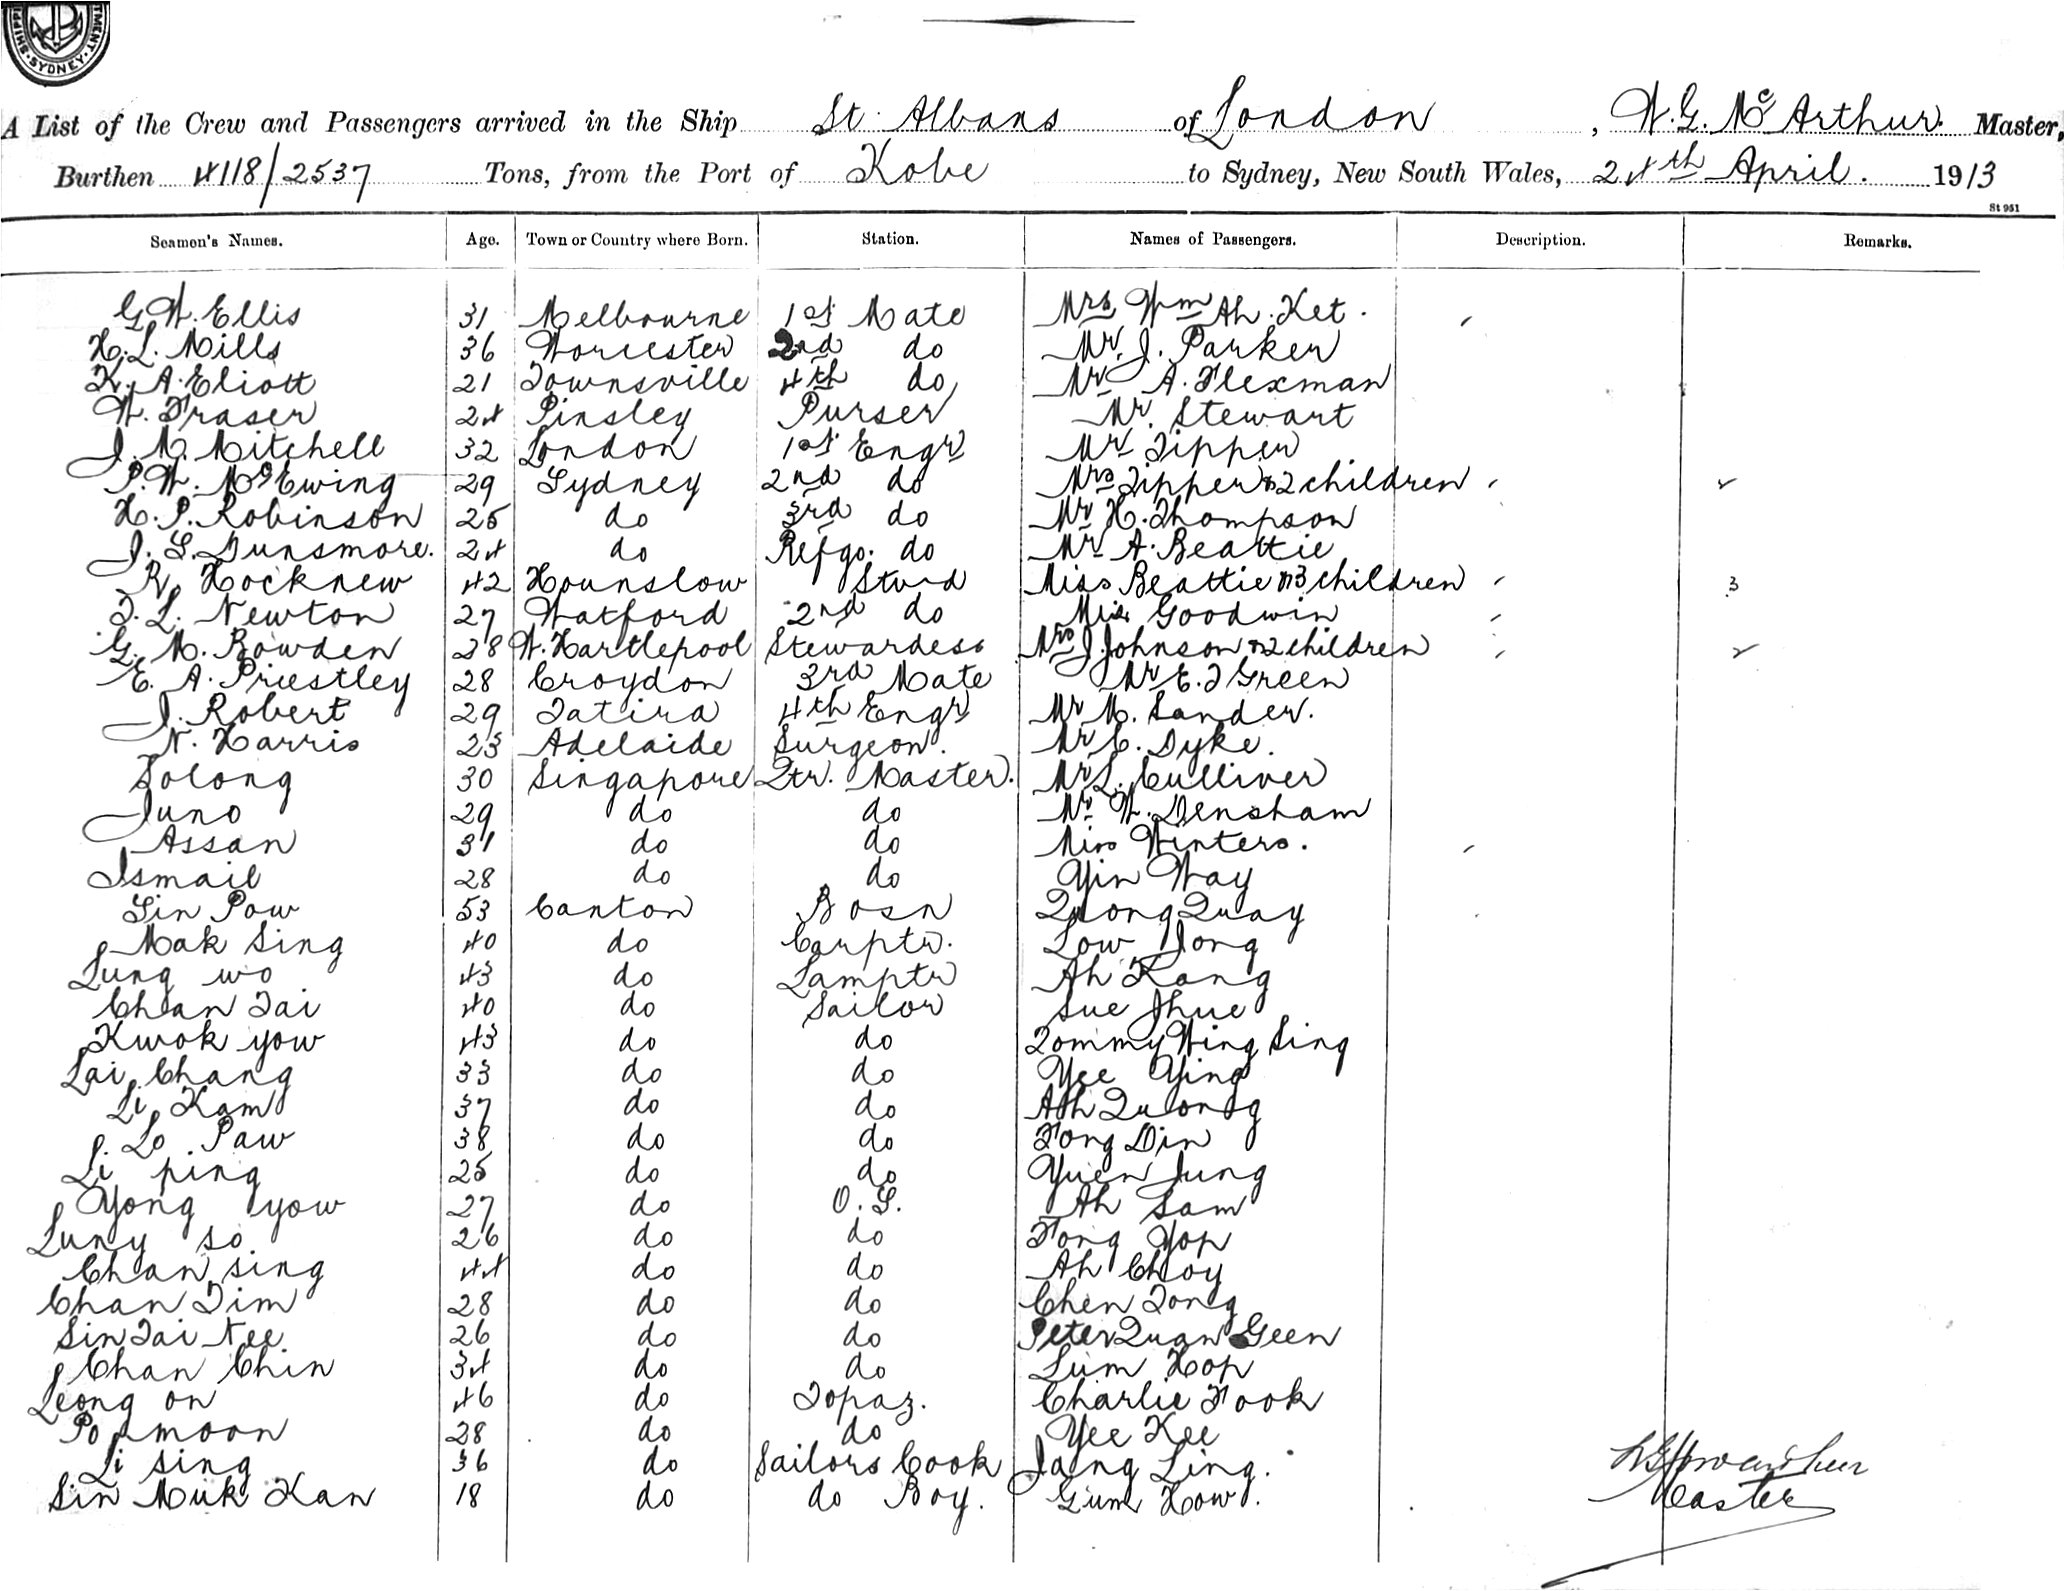 SHIPPI
TMENT.
SYDNEY
A List of the Crew and Passengers arrived in the Ship St. Albans of London, W. G. McArthur. Master,
Burthen 4118/2537 Tons, from the Port of Kobe to Sydney, New South Wales, 24th April. 1913
St 951
Seamen's Names. Age. Town or Country where Born. Station. Names of Passengers. Description. Remarks.
G. W. Ellis 31 Melbourne 1st Mate Mrs Wm Ah. Ket.
H. L. Mills 36 Worcester 2nd do Mr. J. Parker
K. A. Eliott 21 Townsville 4th do Mr A. Flexman
W. Fraser 24 Pinsley Purser Mr. Stewart
J. M. Mitchell 32 London 1st Engr Mr Tipper
P. W. McEwing 29 Sydney 2nd do Mrs Tipper & 2 children 2
H. P. Robinson 25 do 3rd do Mr H. Thompson
J. S. Dunsmore. 24 do Refgo. do Mr A. Beattie
R. Hocknew 42 Hounslow Stwd Miss Beattie & 3 children 3
T. L. Newton 27 Watford 2nd do Miss Goodwin
G. M. Bowden 28 W. Hartlepool Stewardess Mrs J. Johnson & 2 children 2
E. A. Priestley 28 Croydon 3rd Mate Mr E. J Green
J. Robert 29 Tatira 4th Engr Mr M. Sander.
N. Harris 23 Adelaide Surgeon. Mr C. Dyke.
Solong 30 Singapore Qtr. Master. Mr L. Culliver
Juno 29 do do Mr W. Densham
Assan 31 do do Miss Winters.
Ismail 28 do do Yin Way
Sin Pow 53 Canton Bosn Quong Quay
Mak Sing 40 do Carptr. Low Jong
Lung wo 43 do Lamptr Ah Kang
Chan Tai 40 do Sailor Sue Jhue
Kwok yow 43 do do Tommy Wing Sing
Lai Chang 33 do do Yee Ying
Li Kam 37 do do Ah Quong
Lo Paw 38 do do Fong Din
Li ping 25 do do Yuen Jung
Yong yow 27 do O. S. Ah Sam
Luny so 26 do do Fong Yop
Chan sing 44 do do Ah Choy
Chan Tim 28 do do Chen Tong
Sin Tai Nee 26 do do Peter Quan Geen
Chan Chin 34 do do Lum Hop
Leong on 46 do Topaz. Charlie Fook
Po moon 28 do do Yee Kee
Li sing 36 do Sailors Cook Jang Ling.
Sin Muk Kan 18 do do Boy. Gum How.
Master